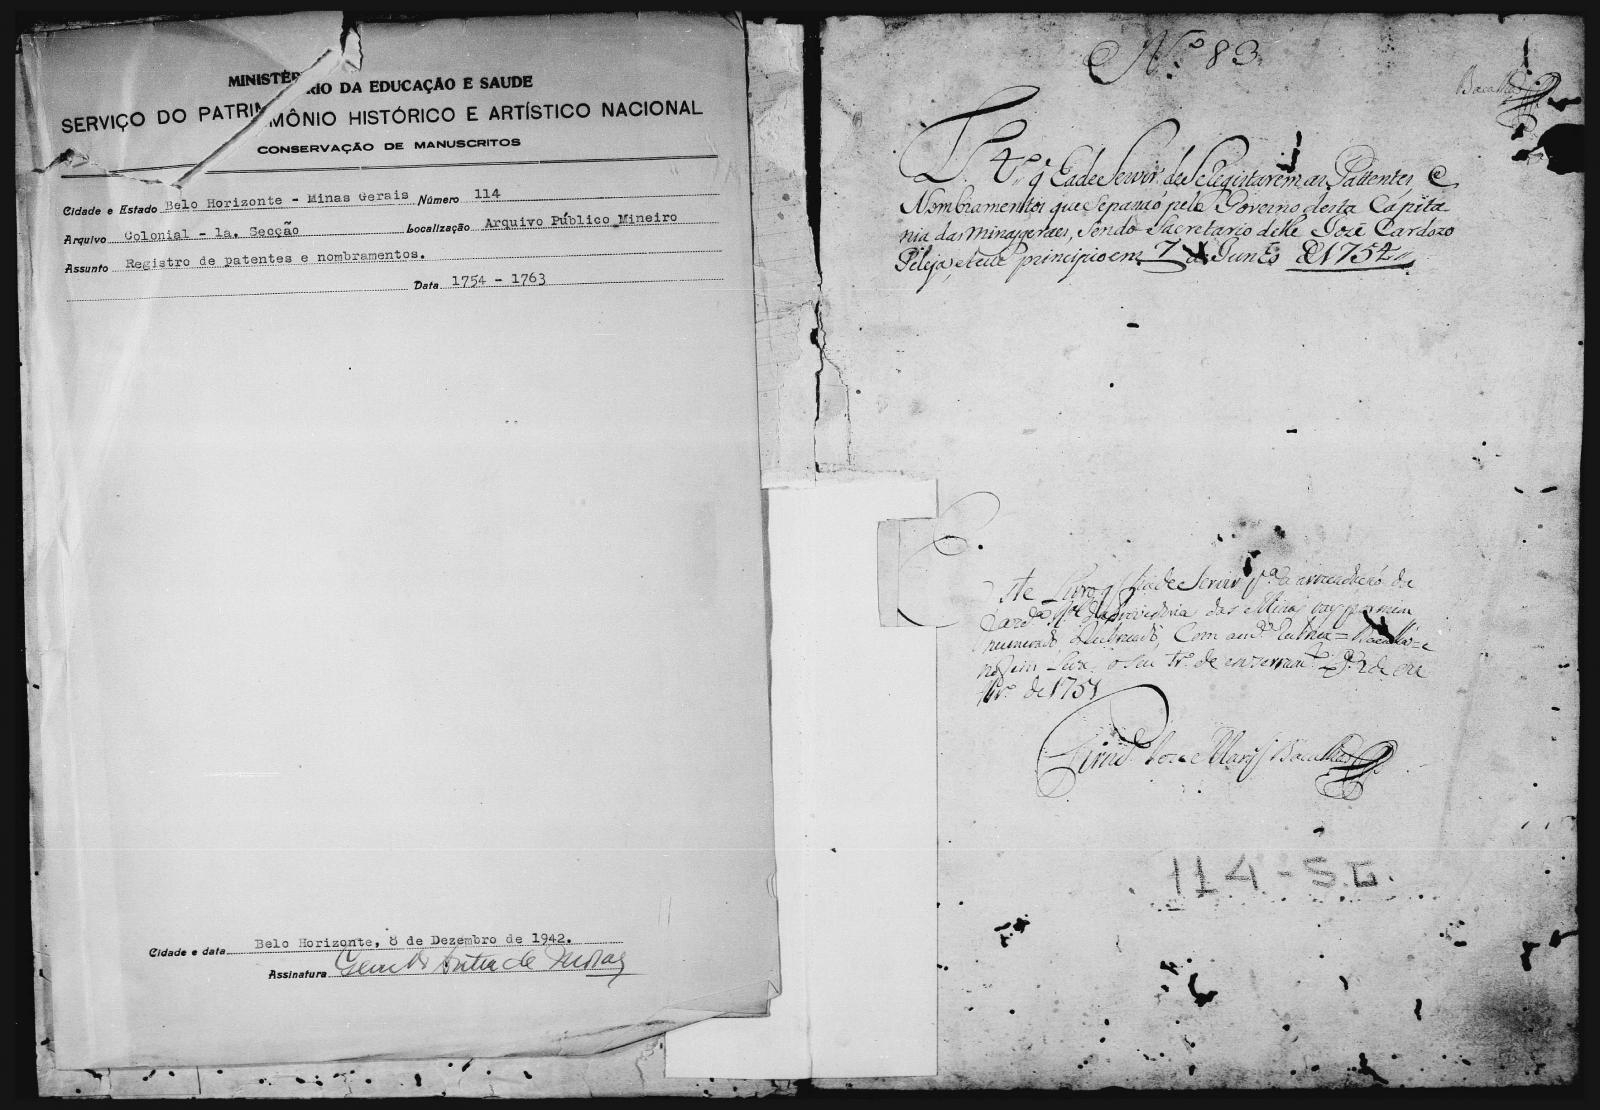 MINISTÉRIO DA EDUCAÇÃO E SAUDE
SERVIÇO DO PATRIMÔNIO HISTÓRICO E ARTÍSTICO NACIONAL
CONSERVAÇÃO DE MANUSCRITOS
Cidade e Estado Belo Horizonte - Minas Gerais Número 114
Arquivo Colonial - 1a. Secção Localização Arquivo Público Mineiro
Assunto Registro de patentes e nombramentos.
Data 1754 - 1763
Cidade e data Belo Horizonte, 8 de Dezembro de 1942.
Assinatura
Nº 83
Bacalhao
L.º 4.º q̃ hade Servir de Se Registarem as Pattentes e
Nombramentos que Sepasaõ pelo Governo desta Capita
nia das minas geraes, Sendo Sacretario delle Jozé Cardozo
Peleja, eteve principio em 7 de Junº de 1754
Este Livro q̃ hade Servir pª a arrecadaçaõ da
Fazdª Rˡ da Provedoria das Minas vay por mim
numerado, Rubricado, Com a mª Rubrica = Bacalhao = e
no fim Leva o Seu trº de enserramtº
de 1751
Bacalhao
114 - S.G.